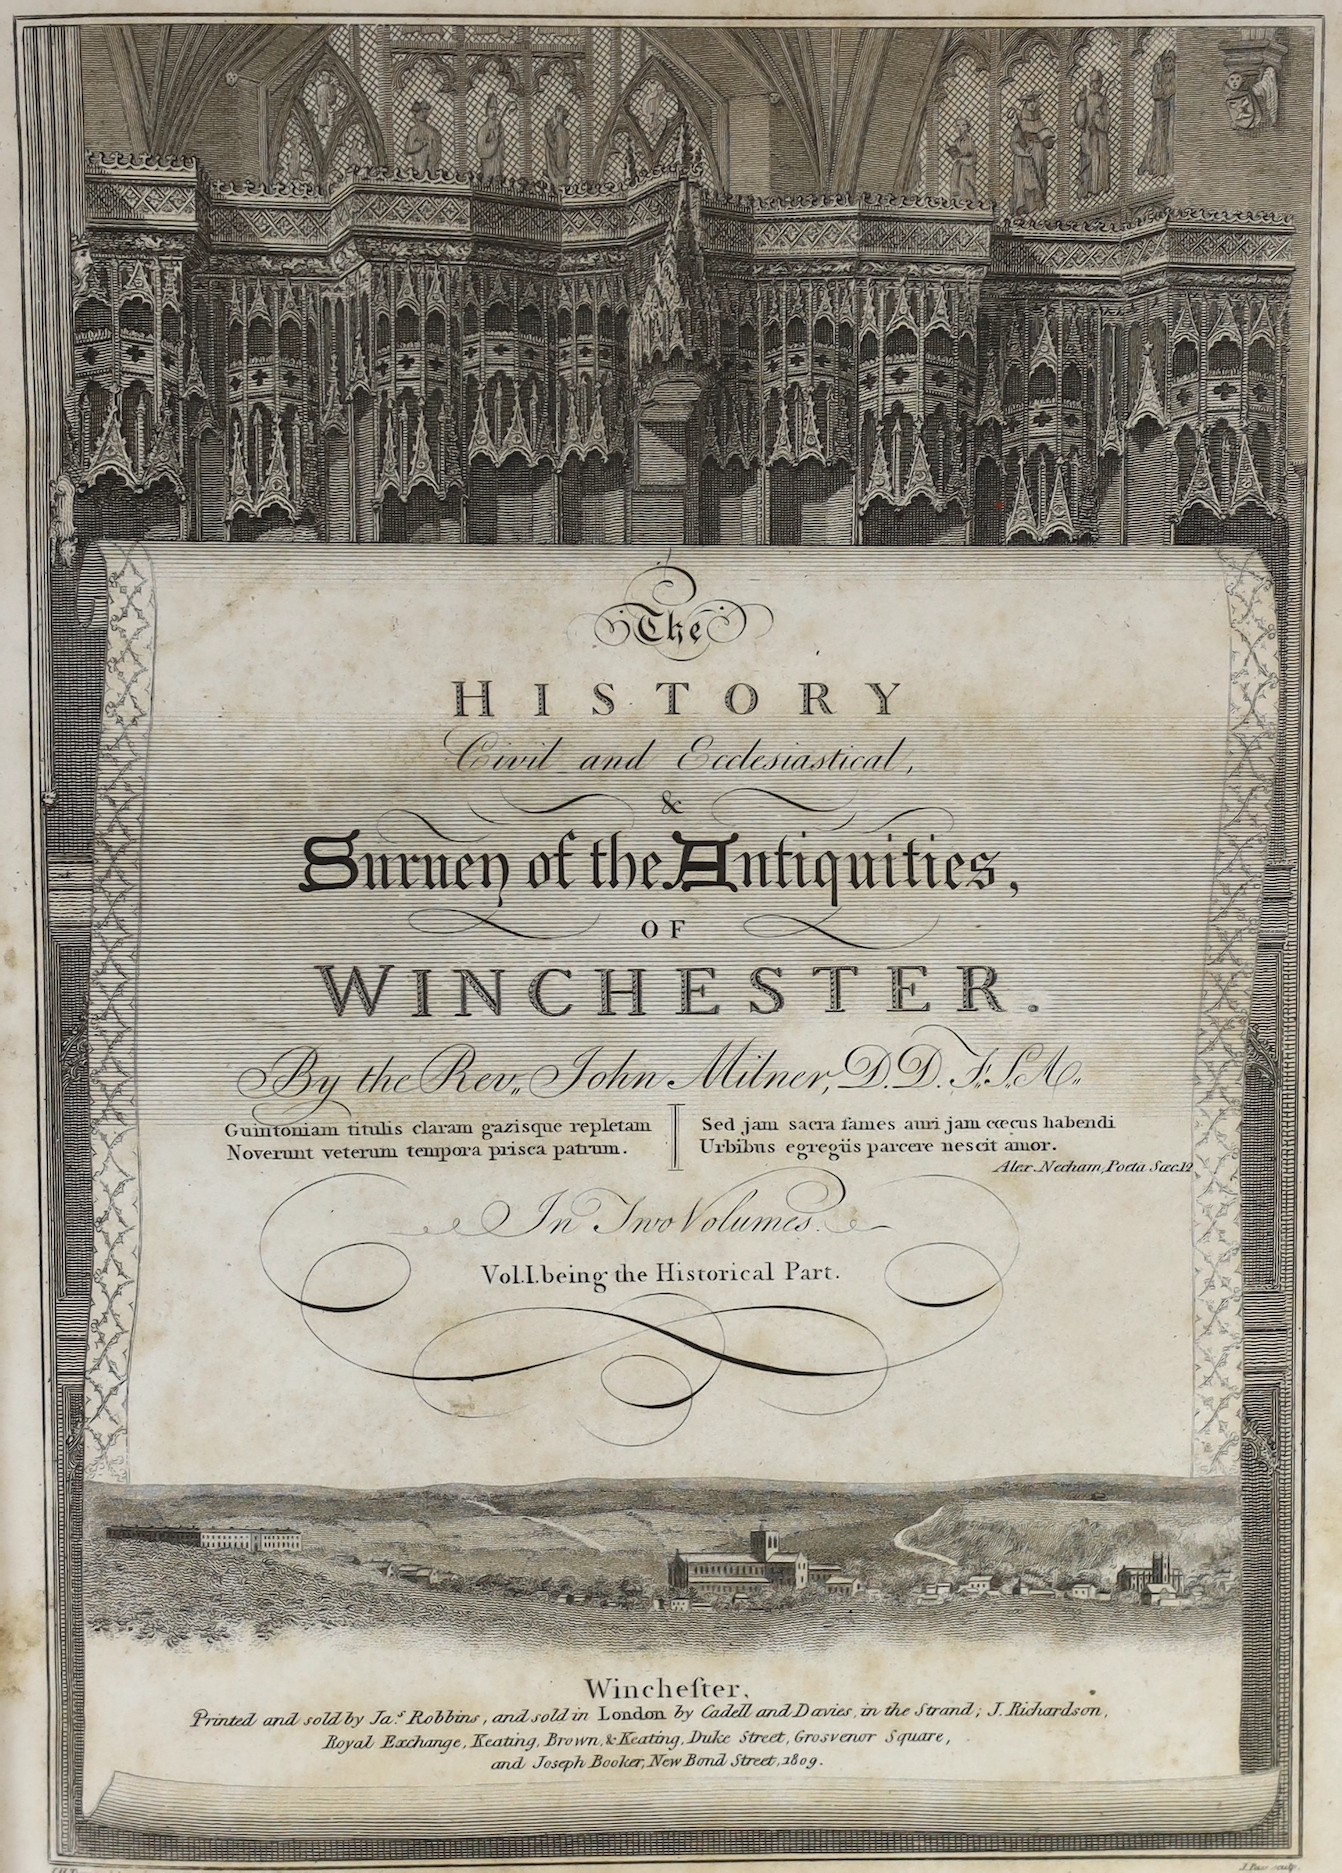 The
HISTORY
Civil and Ecclesiastical,
&
Survey of the Antiquities,
OF
WINCHESTER.
By the Rev,, John Milner, D.D. F.S.A.
Guintoniam titulis claram gazisque repletam
Noverunt veterum tempora prisca patrum.
Sed jam sacra fames auri jam cœcus habendi
Urbibus egregiis parcere nescit amor.
Alex. Necham, Poeta Sæc.12
In Two Volumes.
Vol.I. being the Historical Part.
Wincheſter,
Printed and sold by Jas. Robbins, and sold in London by Cadell and Davies, in the Strand; J. Richardson,
Royal Exchange, Keating, Brown, & Keating, Duke Street, Grosvenor Square,
and Joseph Booker, New Bond Street, 1809.